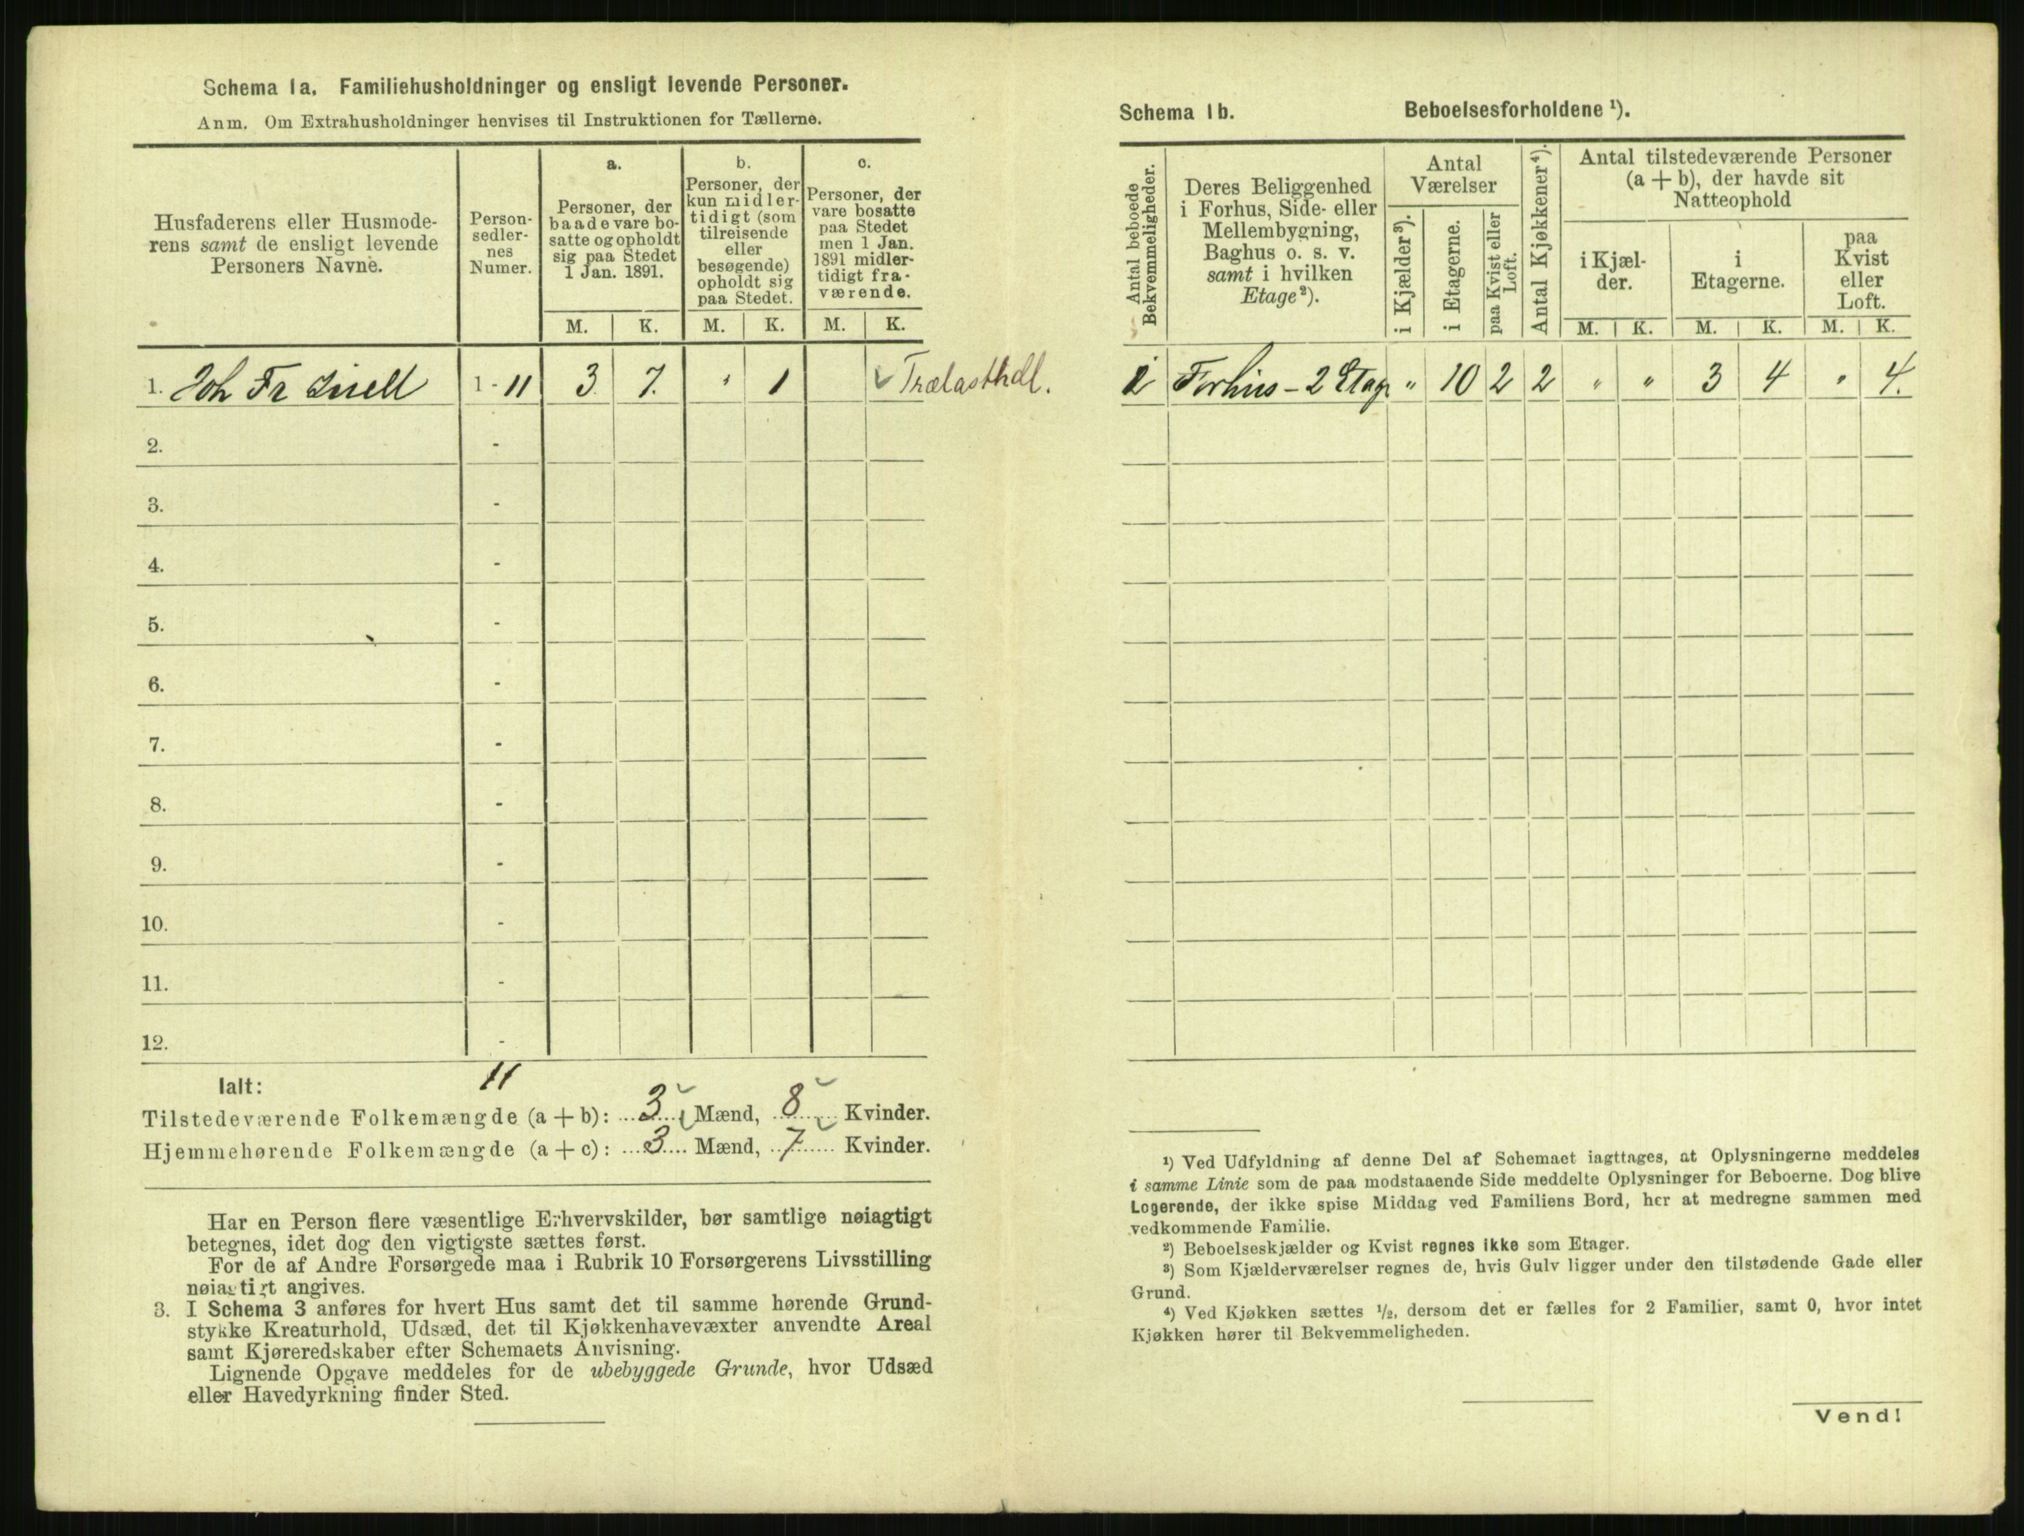 Schema 1a. Familiehusholdninger og ensligt levende Personer.
Anm. Om Extrahusholdninger henvises til Instruktionen for Tællerne.
Husfaderens eller Husmode-
rens samt de ensligt levende
Personers Navne.
Person-
sedler-
nes
Numer.
a.
Personer, der
baade vare bo-
satte og opholdt
sig paa Stedet
1 Jan. 1891.
b.
Personer, der
kun midler-
tidigt (som
tilreisende
eller
besøgende)
opholdt sig
paa Stedet.
c.
Personer, der
vare bosatte
paa Stedet
men 1 Jan.
1891 midler-
tidigt fra-
værende.
M. K. M. K. M. K.
1. Joh Fr 1 - 11 3 7. " 1 Trælasthdl.
2. -
3. -
4. -
5. -
6. -
7. -
8. -
9. -
10. -
11. -
12. -
Ialt: 11
Tilstedeværende Folkemængde (a + b): 3 Mænd, 8 Kvinder.
Hjemmehørende Folkemængde (a + c): 3 Mænd, 7 Kvinder.
Har en Person flere væsentlige Erhvervskilder, bør samtlige nøiagtigt
betegnes, idet dog den vigtigste sættes først.
For de af Andre Forsørgede maa i Rubrik 10 Forsørgerens Livsstilling
nøiagtigt angives.
3. I Schema 3 anføres for hvert Hus samt det til samme hørende Grund-
stykke Kreaturhold, Udsæd, det til Kjøkkenhavevæxter anvendte Areal
samt Kjøreredskaber efter Schemaets Anvisning.
Lignende Opgave meddeles for de ubebyggede Grunde, hvor Udsæd
eller Havedyrkning finder Sted.
Schema 1b. Beboelsesforholdene ¹).
Antal beboede
Bekvemmeligheder.
Deres Beliggenhed
i Forhus, Side- eller
Mellembygning,
Baghus o. s. v.
samt i hvilken
Etage²).
Antal
Værelser
i Kjælder³).
i Etagerne.
paa Kvist eller
Loft.
Antal Kjøkkener⁴).
Antal tilstedeværende Personer
(a + b), der havde sit
Natteophold
i Kjæl-
der.
i
Etagerne.
paa
Kvist
eller
Loft.
M. K. M. K. M. K.
Forhus - 2 Etag. " 10 2 2 " " 3 4 " 4.
¹) Ved Udfyldning af denne Del af Schemaet iagttages, at Oplysningerne meddeles
i samme Linie som de paa modstaaende Side meddelte Oplysninger for Beboerne. Dog blive
Logerende, der ikke spise Middag ved Familiens Bord, her at medregne sammen med
vedkommende Familie.
²) Beboelseskjælder og Kvist regnes ikke som Etager.
³) Som Kjælderværelser regnes de, hvis Gulv ligger under den tilstødende Gade eller
Grund.
⁴) Ved Kjøkken sættes ½, dersom det er fælles for 2 Familier, samt 0, hvor intet
Kjøkken hører til Bekvemmeligheden.
Vend!